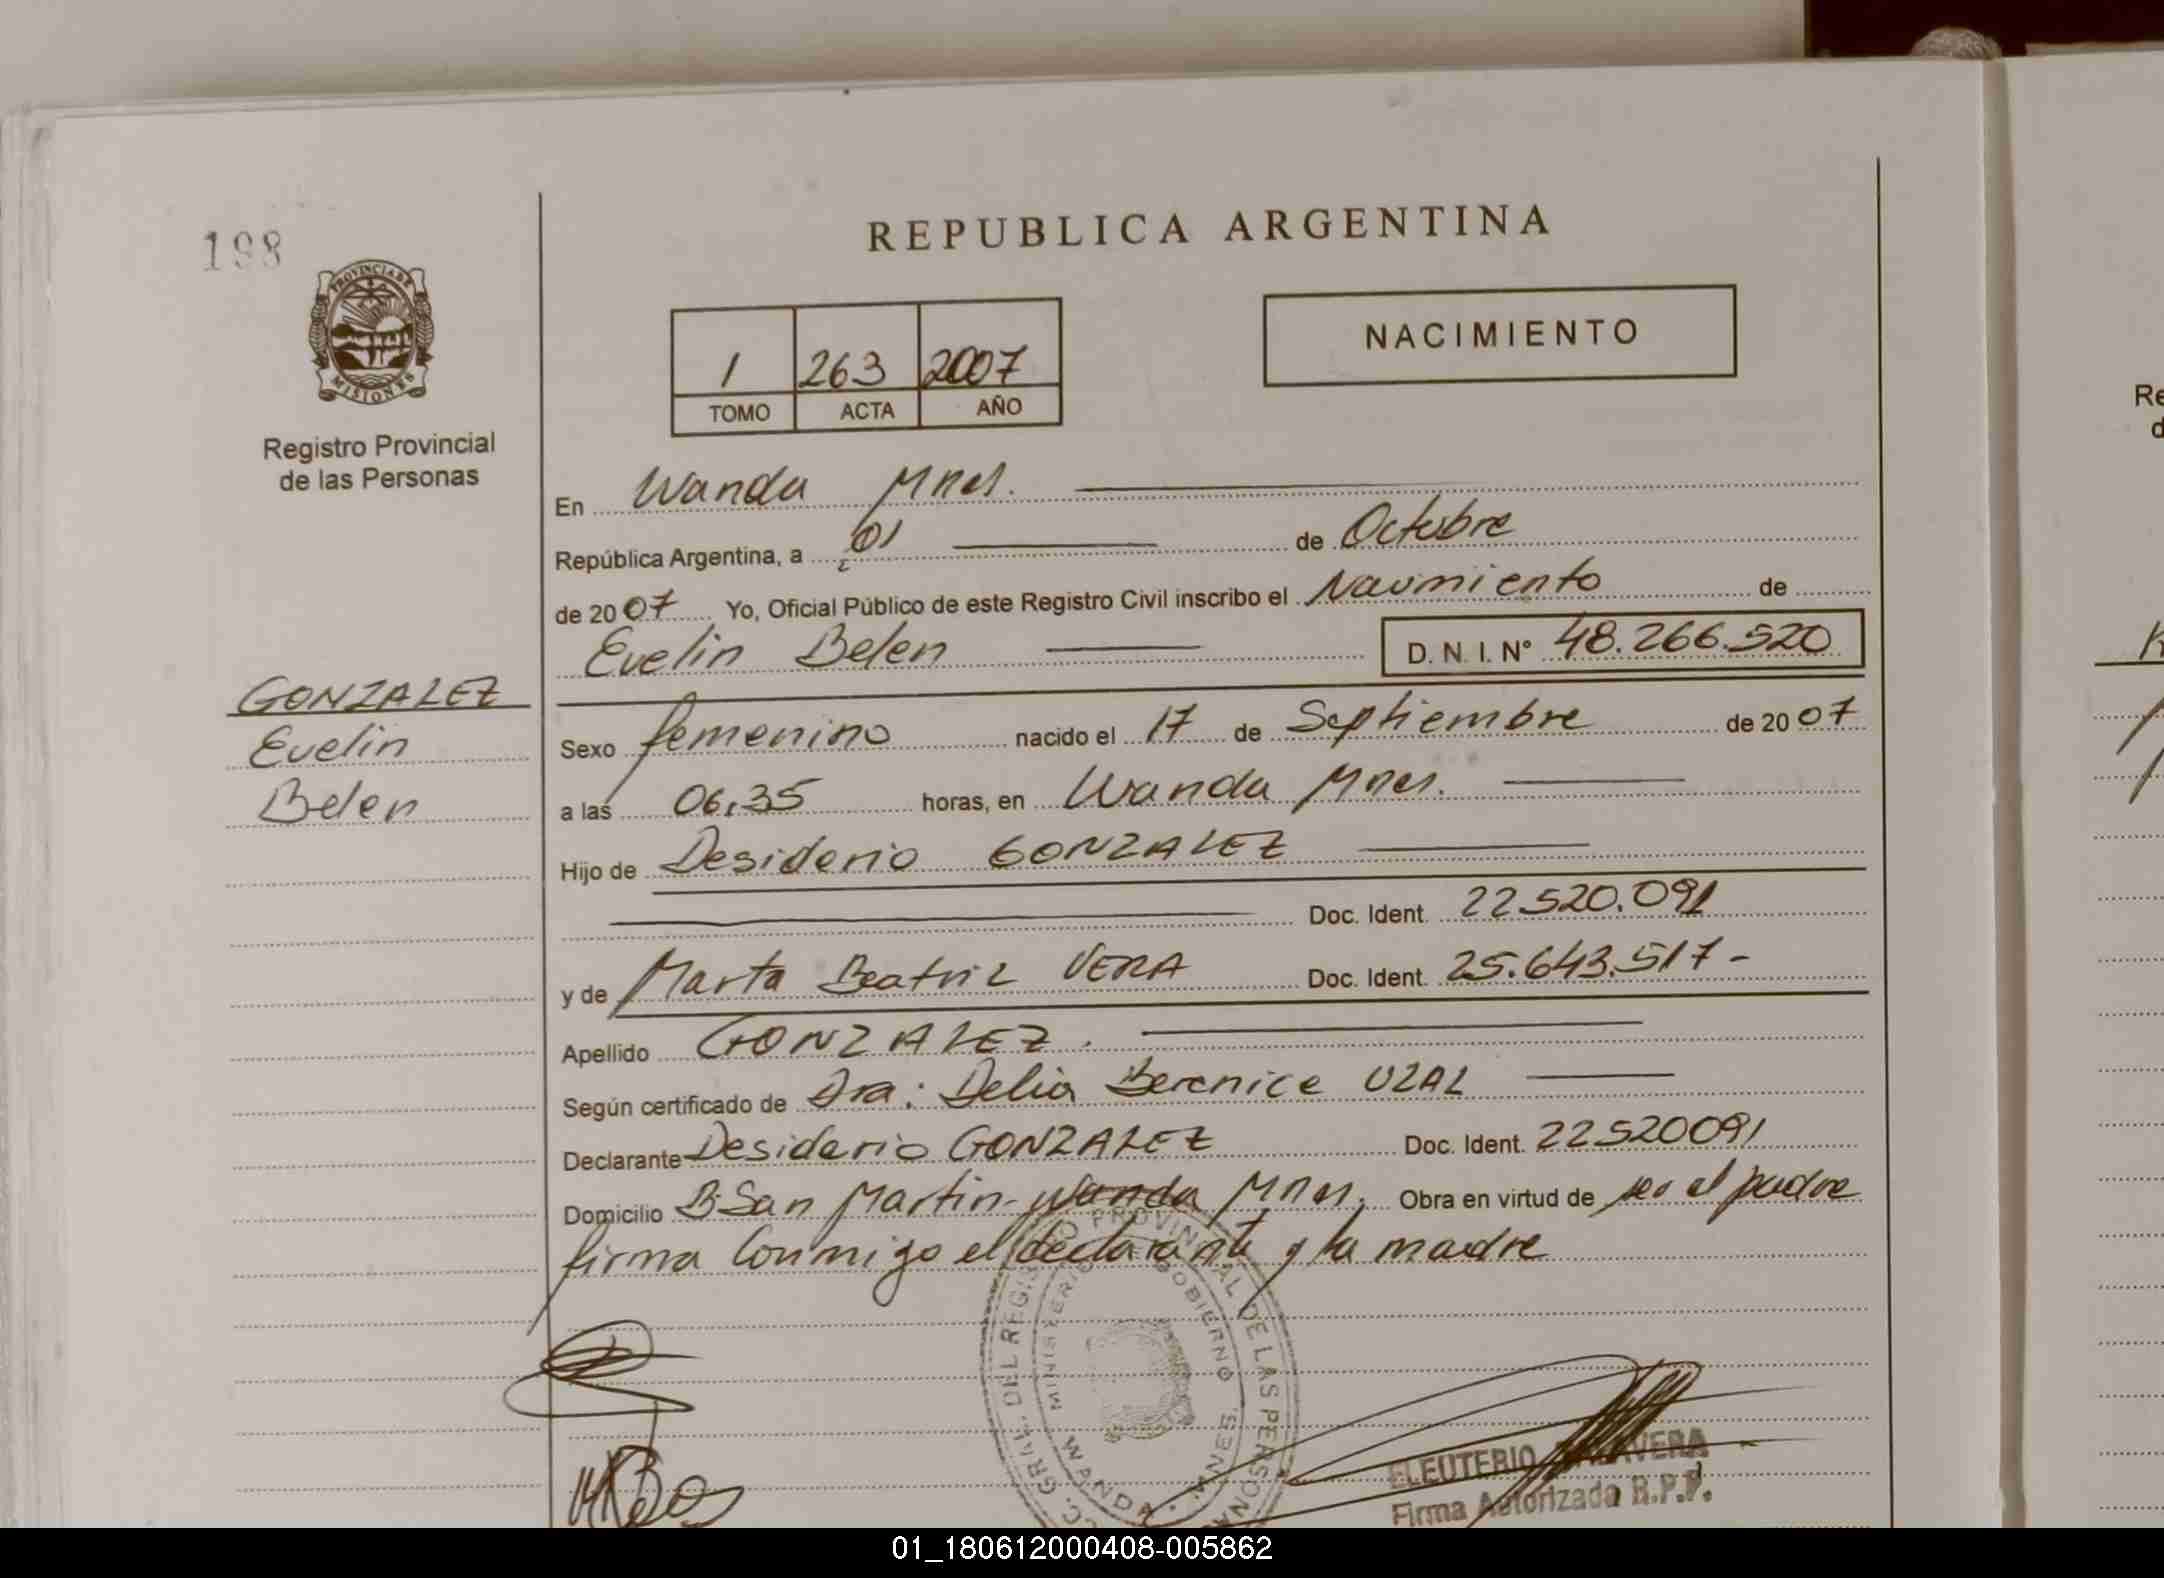 198
PROVINCIA DE
MISIONES
Registro Provincial
de las Personas
REPUBLICA ARGENTINA
1 263 2007
TOMO ACTA AÑO
NACIMIENTO
En Wanda Mnes.
República Argentina, a 01 de Octubre
de 2007 Yo, Oficial Público de este Registro Civil inscribo el Nacimiento de
Evelin Belen D. N. I. Nº 48.266.520
GONZALEZ
Evelin
Belen
Sexo femenino nacido el 17 de Septiembre de 2007
a las 06,35 horas, en Wanda Mnes.
Hijo de Desiderio GONZALEZ
Doc. Ident. 22.520.091
y de Marta Beatriz VERA Doc. Ident. 25.643.517-
Apellido GONZALEZ.
Según certificado de Dra: Delia Berenice UZAL
Declarante Desiderio GONZALEZ Doc. Ident. 22520091
Domicilio B San Martin-Wanda Mnes. Obra en virtud de ser el padre
firma Conmigo el declarante y la madre
GRAL. DEL REGISTRO PROVINCIAL DE LAS PERSONAS
MINISTERIO GOBIERNO
WANDA - MNES.
ELEUTERIO TALAVERA
Firma Autorizada R.P.P.
Re
d
01_180612000408-005862